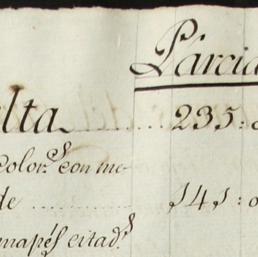 Párcia
elta ........ 235:
color.s con me-
de ............ 141:
mapés citad.s